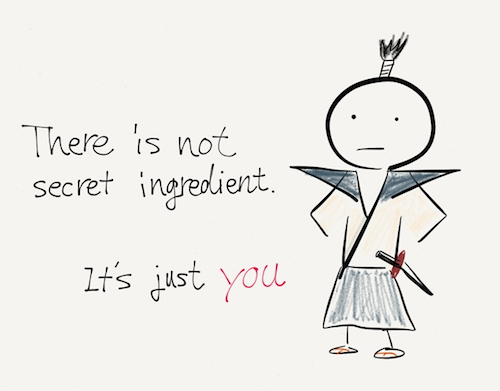 There is not
secret ingredient.
It's just you